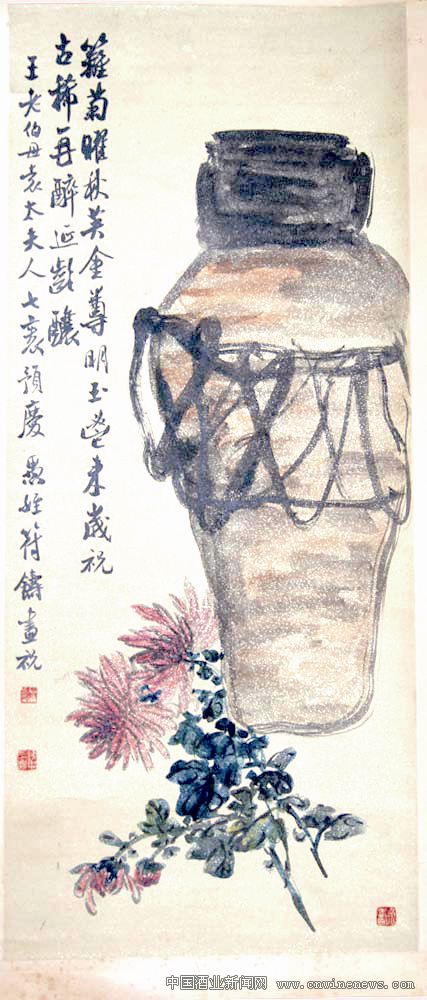 籬菊曜秋英金尊明玉斝来歲祝
古稀再醉延齡釀
王老伯母袁太夫人七裹預慶 愚姪符鑄畫祝
中国酒业新闻网 www.cnwinenews.com